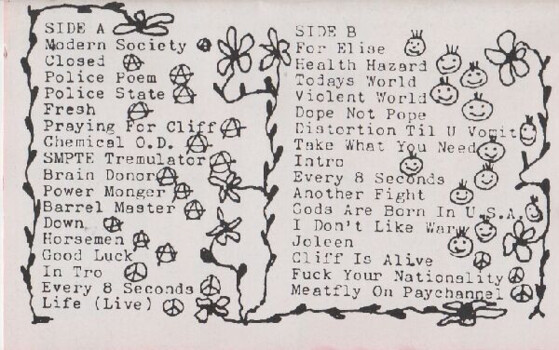 SIDE A
Modern Society
Closed
Police Poem
Police State
Fresh
Praying For Cliff
Chemical O.D.
SMPTE Tremulator
Brain Donor
Power Monger
Barrel Master
Down
Horsemen
Good Luck
In Tro
Every 8 Seconds
Life (Live)
SIDE B
For Elise
Health Hazard
Todays World
Violent World
Dope Not Pope
Distortion Til U Vomit
Take What You Need
Intro
Every 8 Seconds
Another Fight
Gods Are Born In U.S.A.
I Don't Like Warw
Joleen
Cliff Is Alive
Fuck Your Nationality
Meatfly On Paychannel